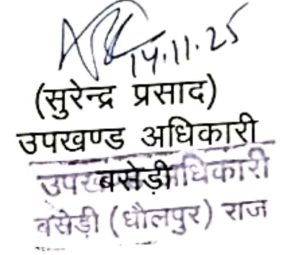 14.11.25
(सुरेन्द्र प्रसाद)
उपखण्ड अधिकारी
बसेड़ी
उपखण्ड अधिकारी
बसेड़ी (धौलपुर) राज